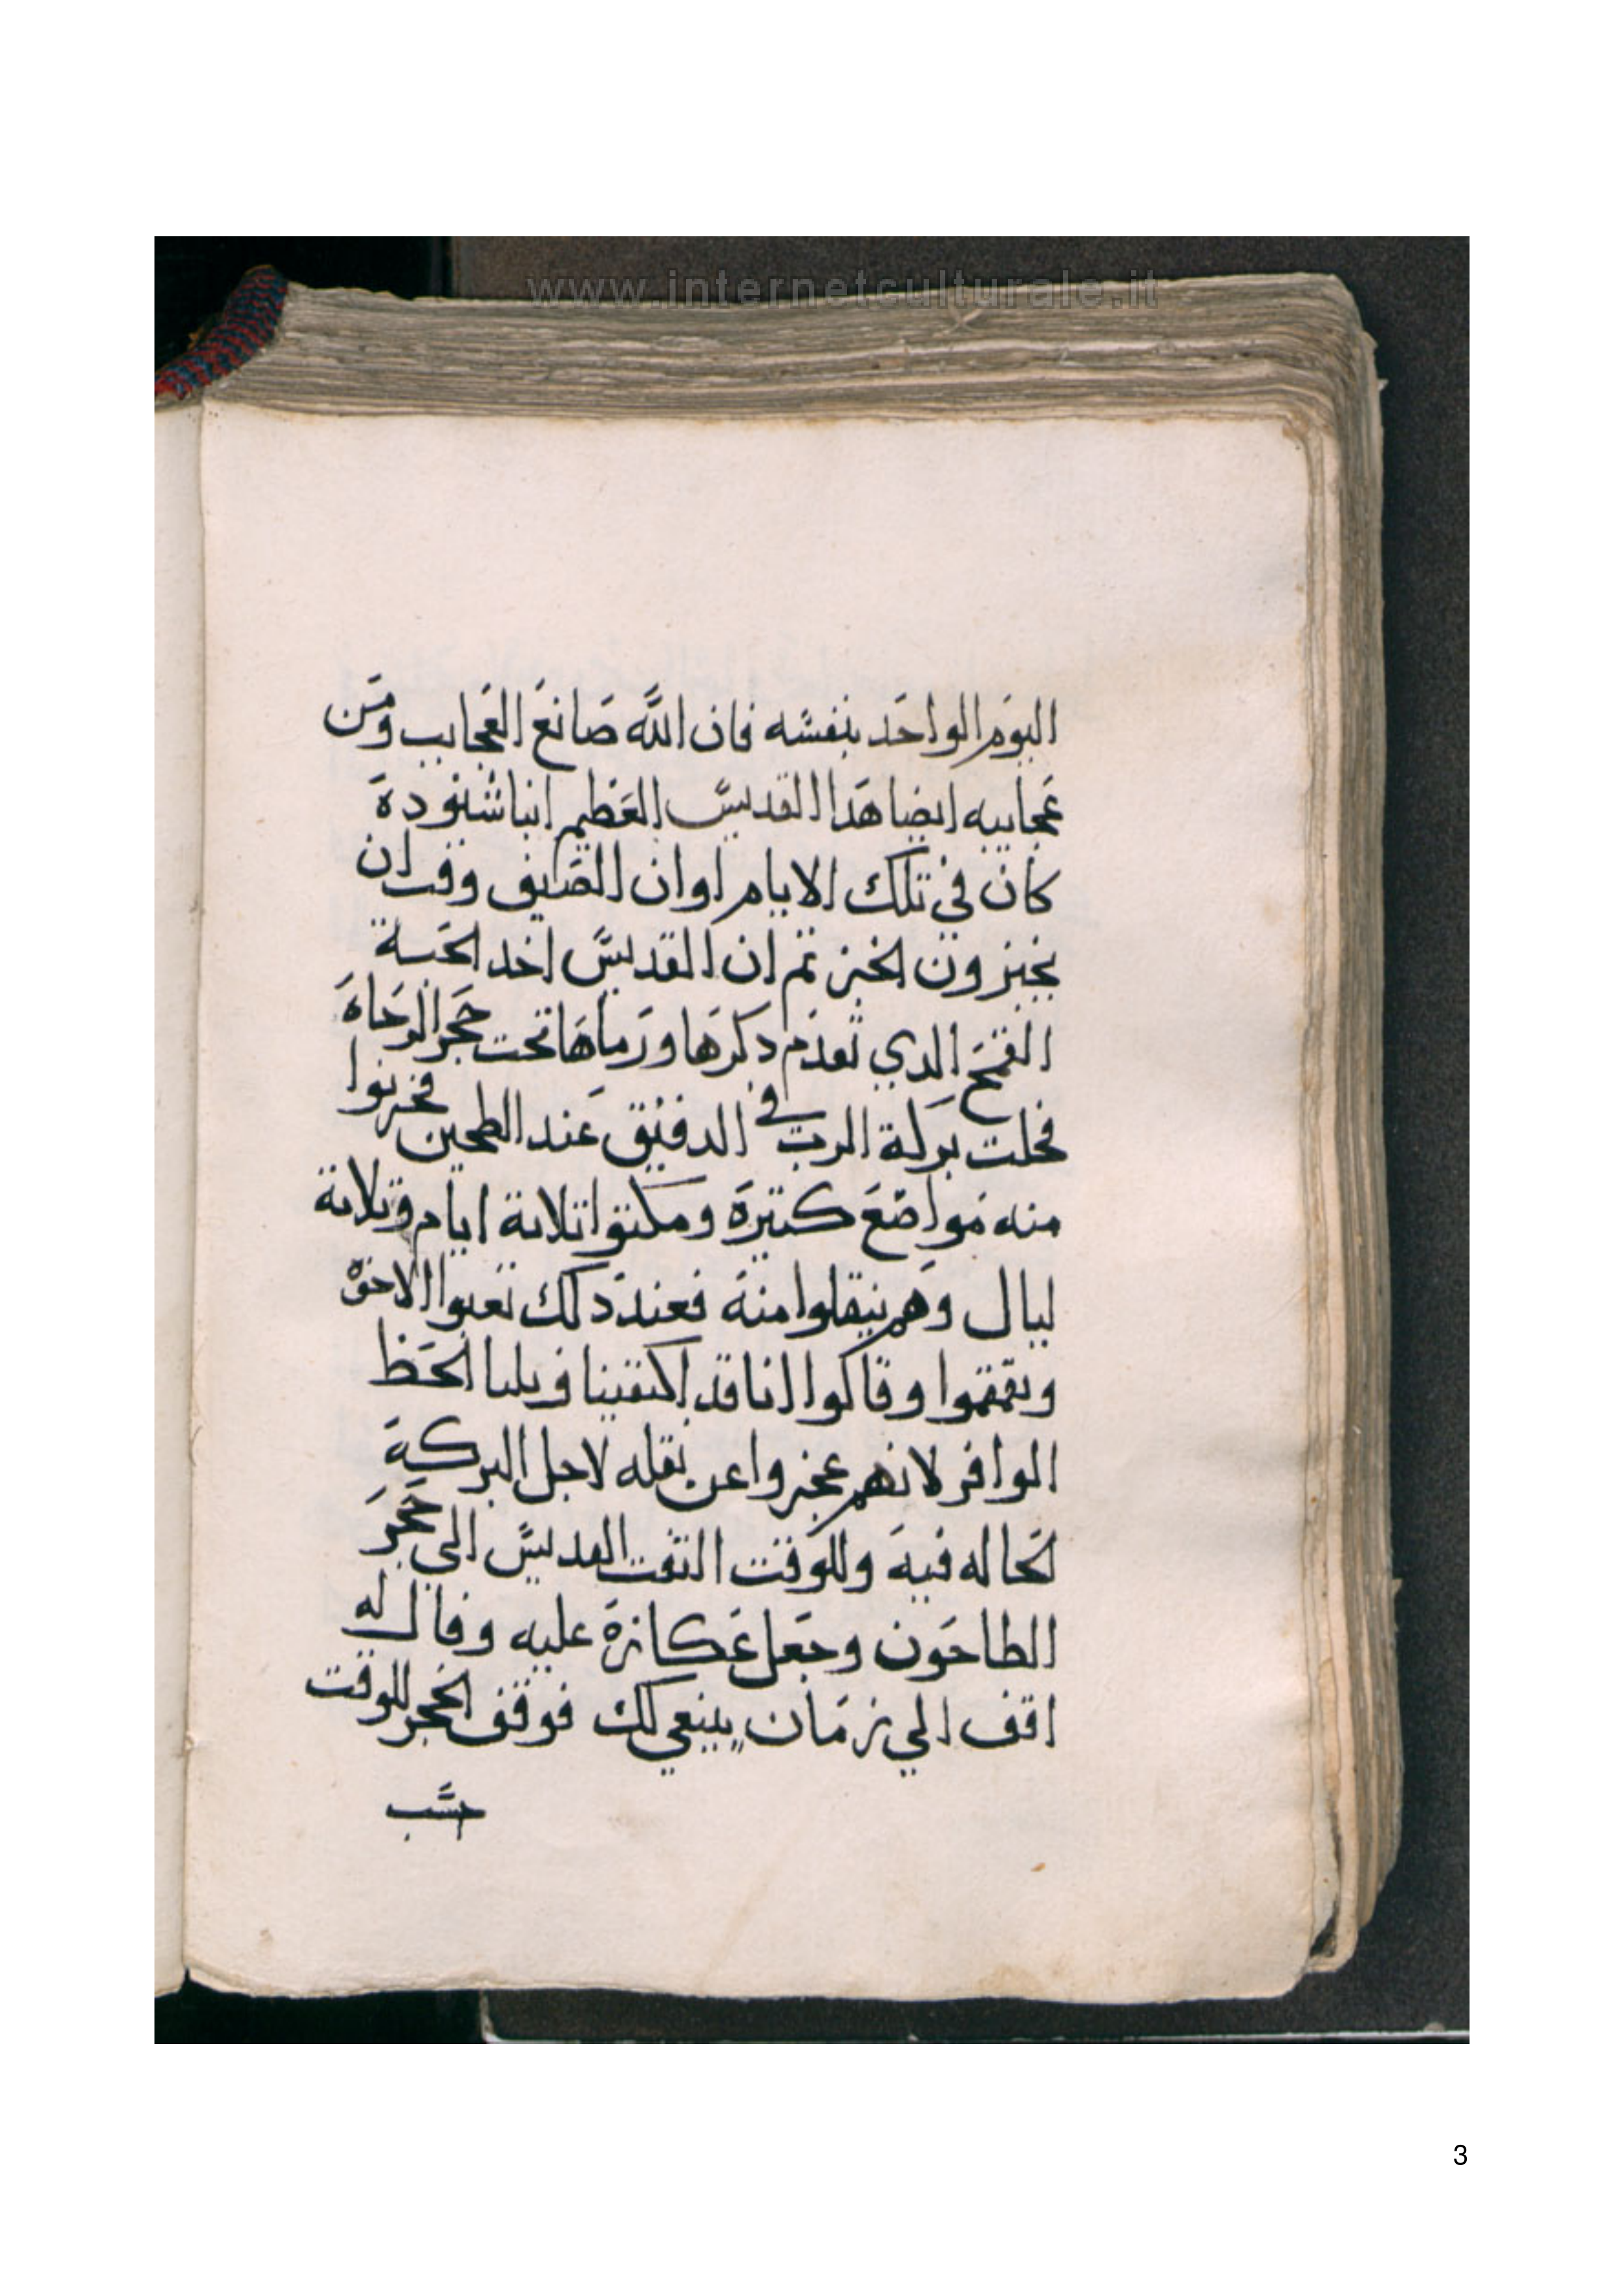 www.internetculturale.it
اليوم الواحد بنفسه فان الله صانع العجايب ومن
عجايبه ايضا هدا القديس العظيم انبا شنوده
كان في تلك الايام اوان الصايف وقت ان
يخبزون الخبز تم ان القديس اخد الحبة
القمح الدي تقدم دكرها ورماها تحت حجر الرحاه
فحلت بركة الرب في الدقيق عند الطحين فخزنوا
منه مواضع كتيرة ومكتوا تلاتة ايام وتلاتة
ليال وهم ينقلوا منه فعند دلك تعبوا الاخوة
وتقمقموا وقالوا اننا قد اكتفينا ونلنا الحظ
الوافر لانهم عجزوا عن نقله لاجل البركة
الحاله فيه وللوقت التفت القديس الى حجر
الطاحون وجعل عكازة عليه وقال له
اقف الي زمان ينبغي لك فوقف الحجر للوقت
حسب
3